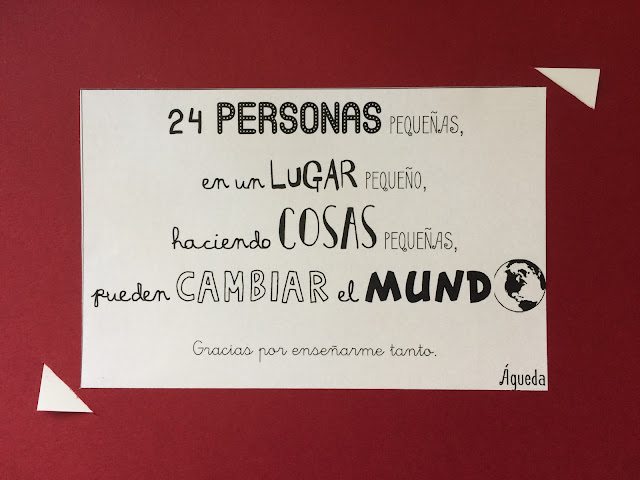 24 PERSONAS PEQUEÑAS,
en un LUGAR PEQUEÑO,
haciendo COSAS PEQUEÑAS,
pueden CAMBIAR el MUNDO
Gracias por enseñarme tanto.
Águeda